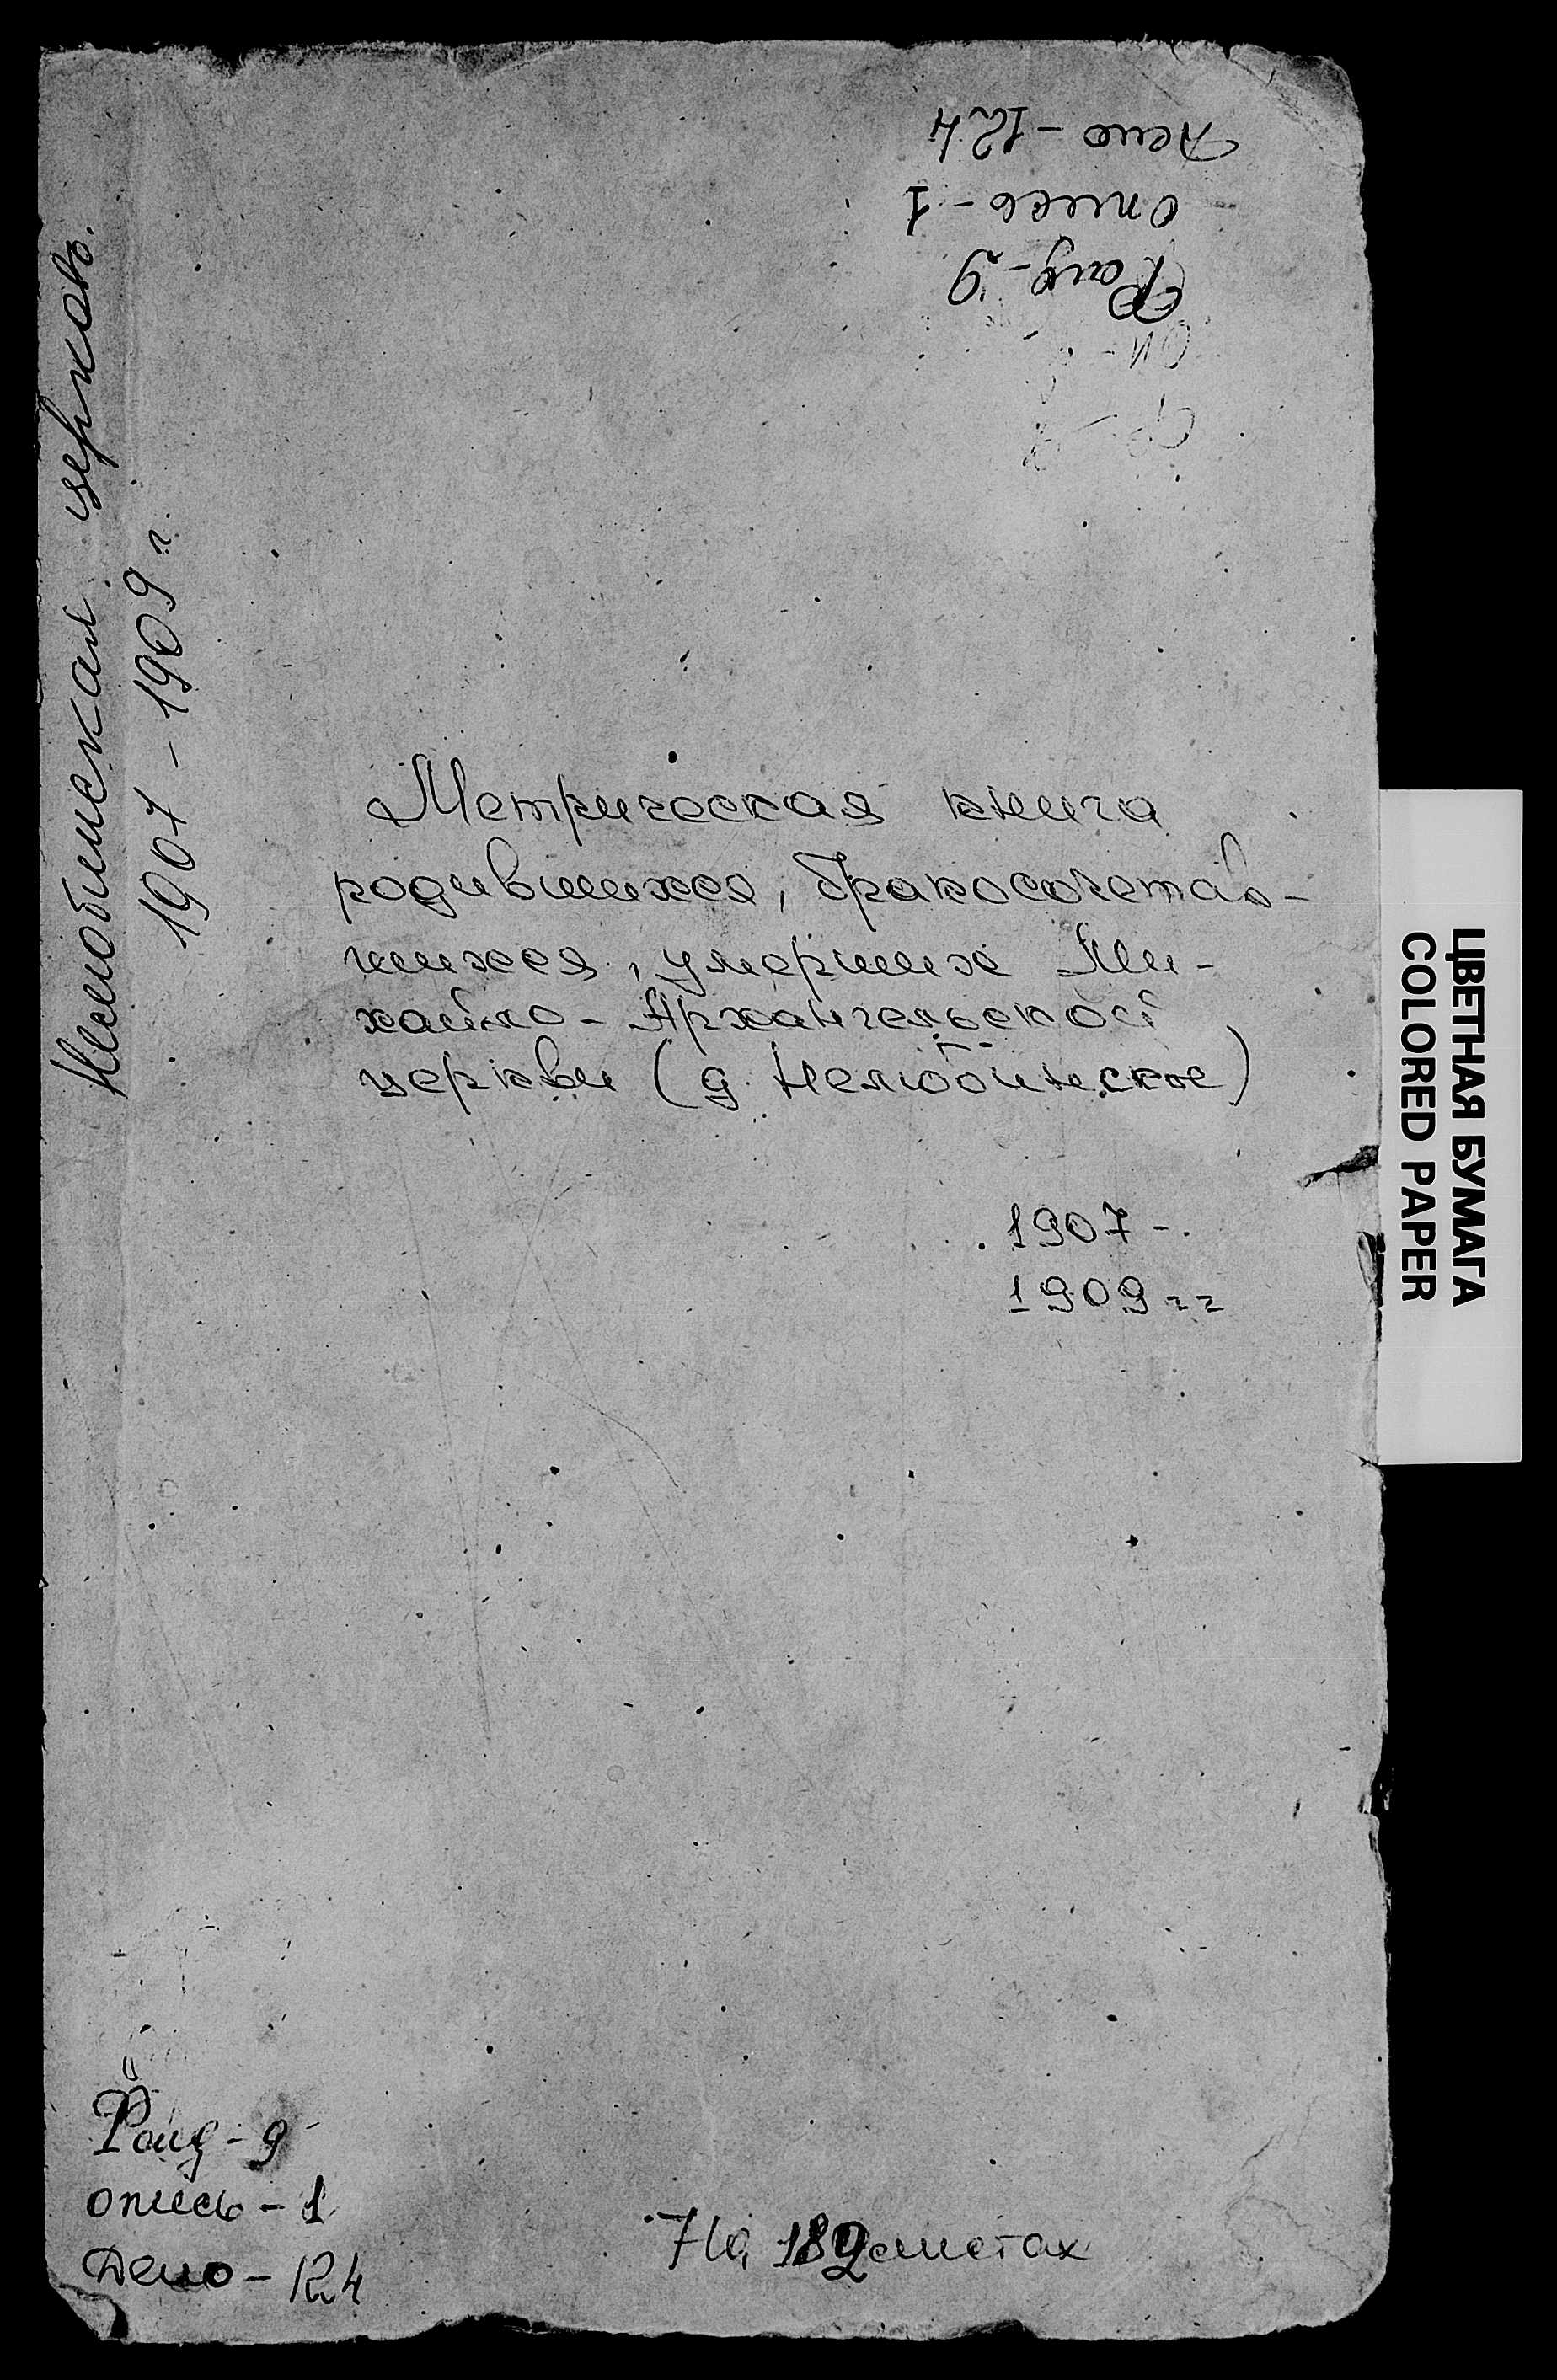 Дело - 124
опись - 1
Фонд - 9
церковь.
1907 - 1909 г.
Метрическая книга
родившихся, бракосочетав-
шихся, умерших Ми-
хайло-Архангельской
церкви (д. Нелюбинское)
1907 -
1909 гг
ЦВЕТНАЯ БУМАГА
COLORED PAPER
Фонд - 9
опись - 1
Дело - 124
На 182 листах